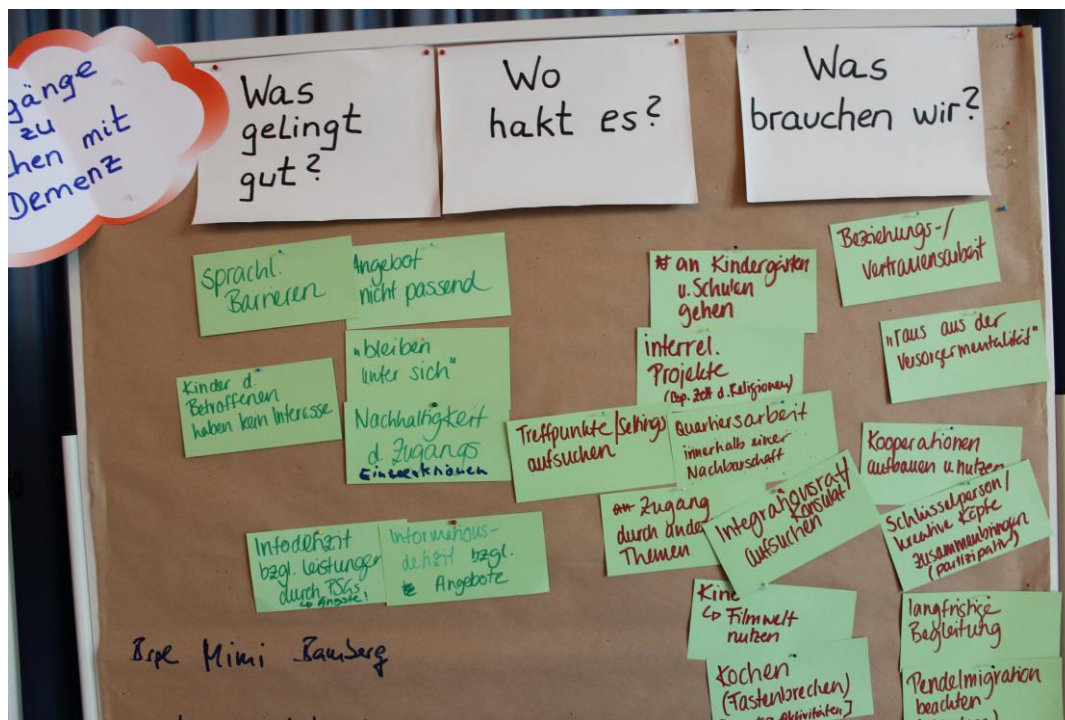 gänge
zu
chen mit
Demenz
Was
gelingt
gut?
Wo
hakt es?
Was
brauchen wir?
sprachl.
Barrieren
Angebot
nicht passend
"bleiben
unter sich"
Kinder d.
Betroffenen
haben kein Interesse
Nachhaltigkeit
d. Zugangs
Infodefizit
bzgl. Leistungen
durch PSGs
↳ Ängste!
Informations-
defizit bzgl.
Angebote
an Kindergärten
u. Schulen
gehen
interrel.
Projekte
(Bsp. Zelt d. Religionen)
Treffpunkte/Settings
aufsuchen
Quartiersarbeit
innerhalb einer
Nachbarschaft
Zugang
durch andere
Themen
Integrationsrat/
Konsulat
aufsuchen
Kino
↳ Filmwelt
nutzen
Kochen
(Fastenbrechen)
Aktivitäten]
Beziehungs-/
Vertrauensarbeit
"raus aus der
Versorgermentalität"
Kooperationen
aufbauen u. nutzen
Schlüsselperson/
kreative Köpfe
zusammenbringen
(partizipativ)
langfristige
Begleitung
Pendelmigration
beachten
Mimi Bamberg